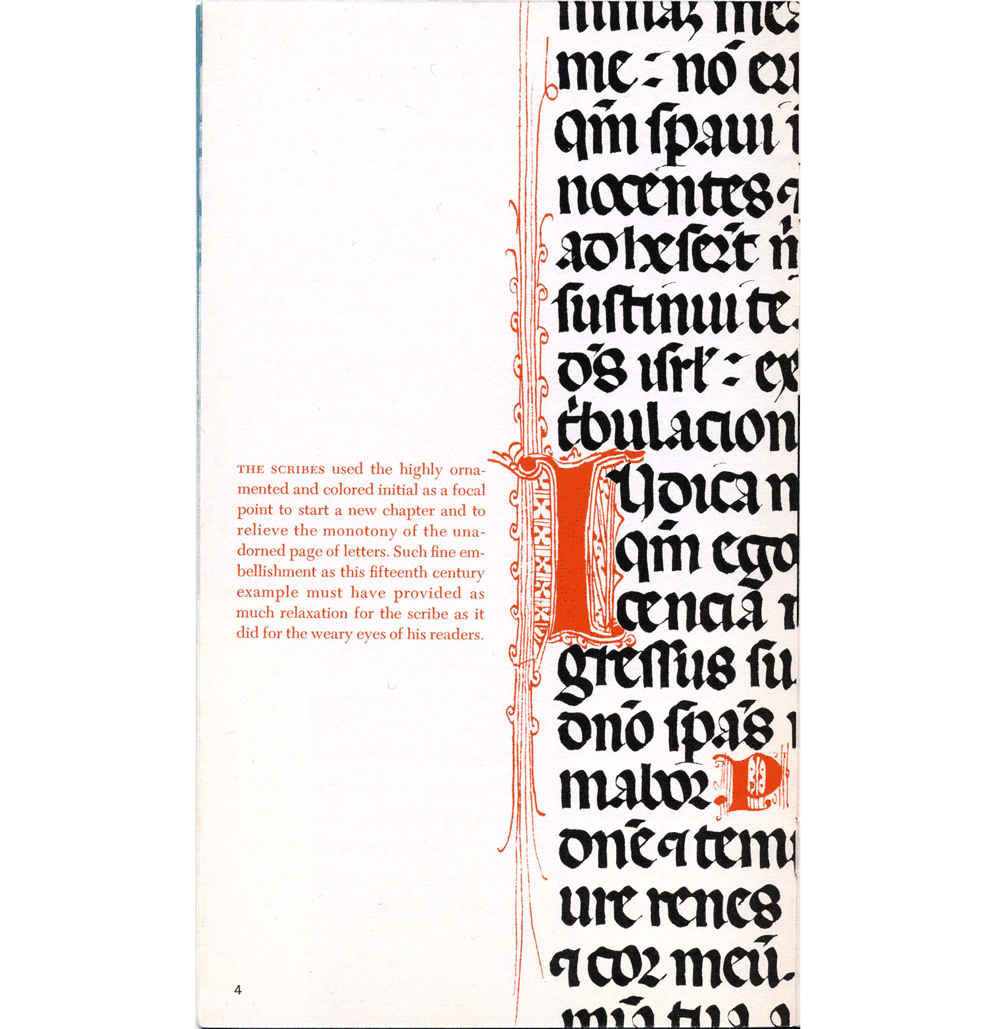 THE SCRIBES used the highly orna-
mented and colored initial as a focal
point to start a new chapter and to
relieve the monotony of the una-
dorned page of letters. Such fine em-
bellishment as this fifteenth century
example must have provided as
much relaxation for the scribe as it
did for the weary eyes of his readers.
4
me: nō
qm̄ ſpaui
nocentes ⁊
adheſeꝛ̄t m̄
ſuſtinui te.
ds̄ iſrl: ex
t̓bulacion
IUdica m
qm̄ ego
cenciā
greſſus ſu
dnō ſpās
maboꝛ P
dnē ⁊ tem
ure renes
⁊ coꝛ meū.
mīa tua a